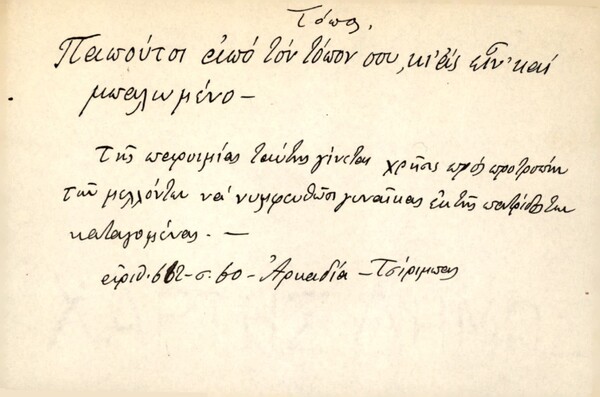 Τόπος.
Παπούτσι ἀπό τόν τόπον σου, κι' ἄς εἶν' καί
μπαλωμένο —
Τῆς παροιμίας ταύτης γίνεται χρῆσις πρός προτροπήν
τῶν μελλόντων νά νυμφευθῶσι γυναῖκας ἐκ τῆς πατρίδος των
καταγομένας. —
ἀριθ. 662 - σ. 60 - Ἀρκαδία - Τσίριμπας